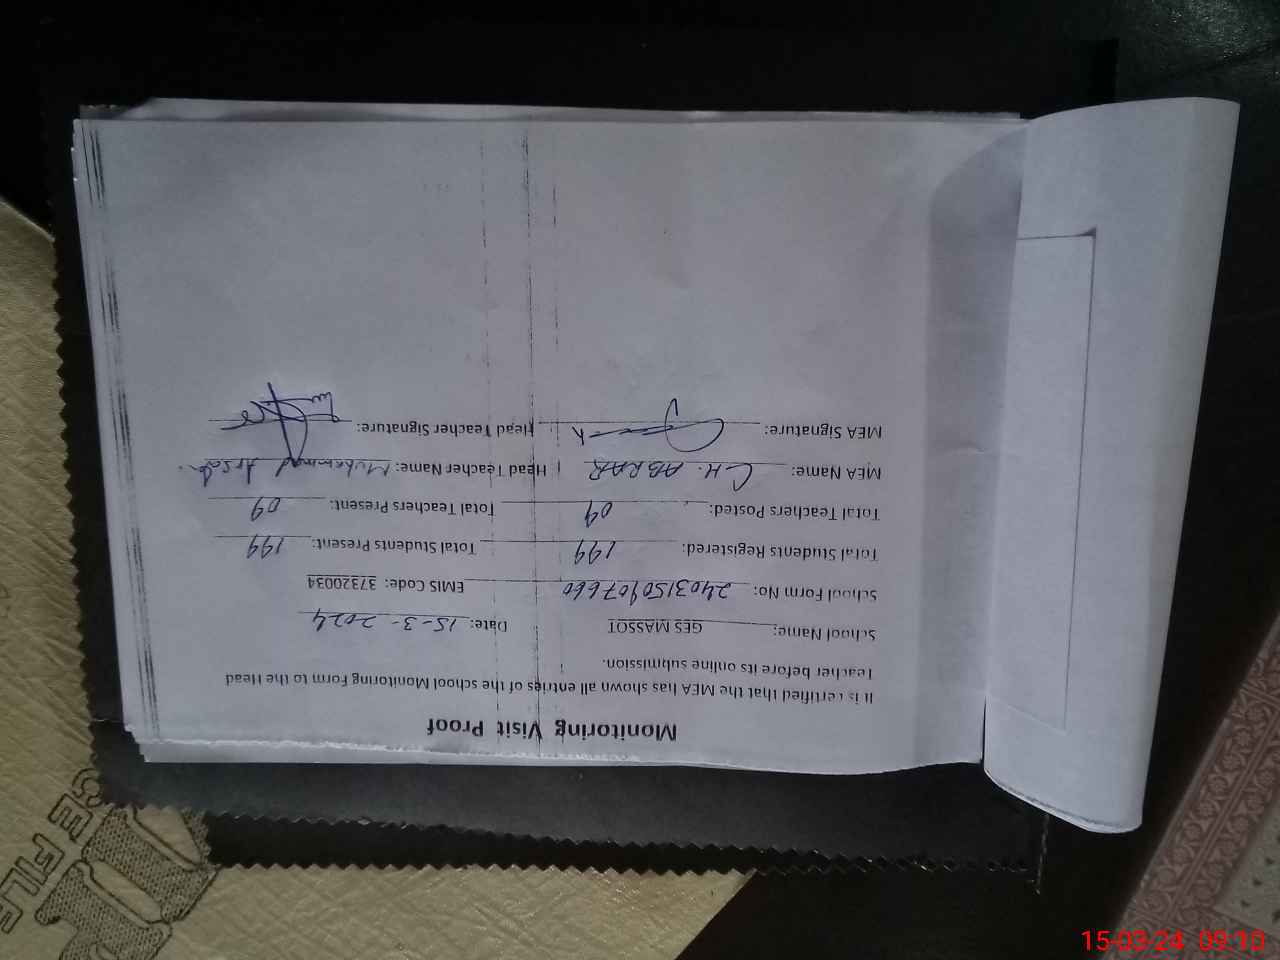 Monitoring Visit Proof
It is certified that the MEA has shown all entries of the school Monitoring Form to the Head
Teacher before its online submission.
School Name: GES MASSOT Date: 15-3-2024
School Form No: 2403150907660 EMIS Code: 37320034
Total Students Registered: 199 Total Students Present: 199
Total Teachers Posted: 09 Total Teachers Present: 09
MEA Name: CH. ABRAR Head Teacher Name: Muhammad
MEA Signature: Head Teacher Signature:
CE FILE
15-03-24 09:10